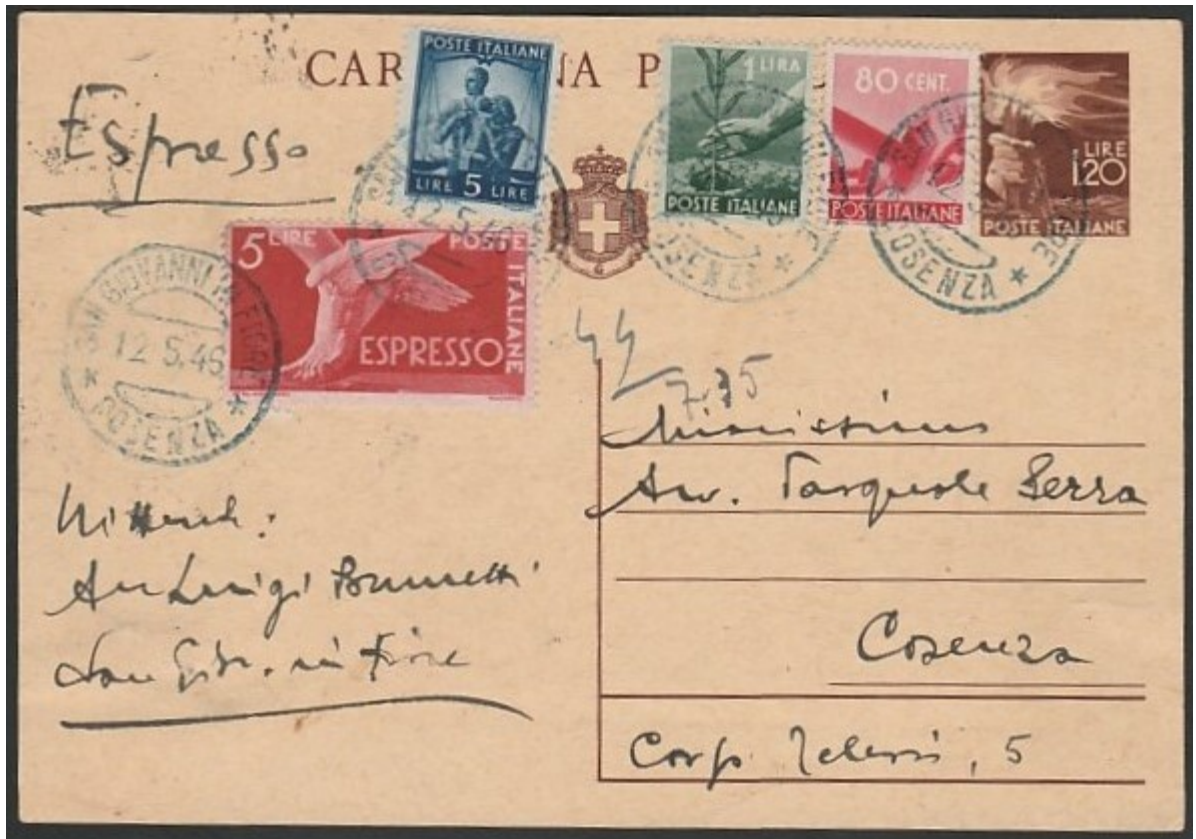 CAR NA P
Espresso
POSTE ITALIANE
LIRE 5 LIRE
1 LIRA
POSTE ITALIANE
80 CENT.
POSTE ITALIANE
LIRE
1,20
POSTE ITALIANE
5 LIRE POSTE ITALIANE
ESPRESSO
SAN GIOVANNI IN FIORE
12.5.46
* COSENZA *
12.5.46
COSENZA *
COSENZA *
44
7.35
Avv. Pasquale Serra
Cosenza
Corso Telesio, 5
Mittente:
Avv Luigi Brunetti
San Giov. in Fiore